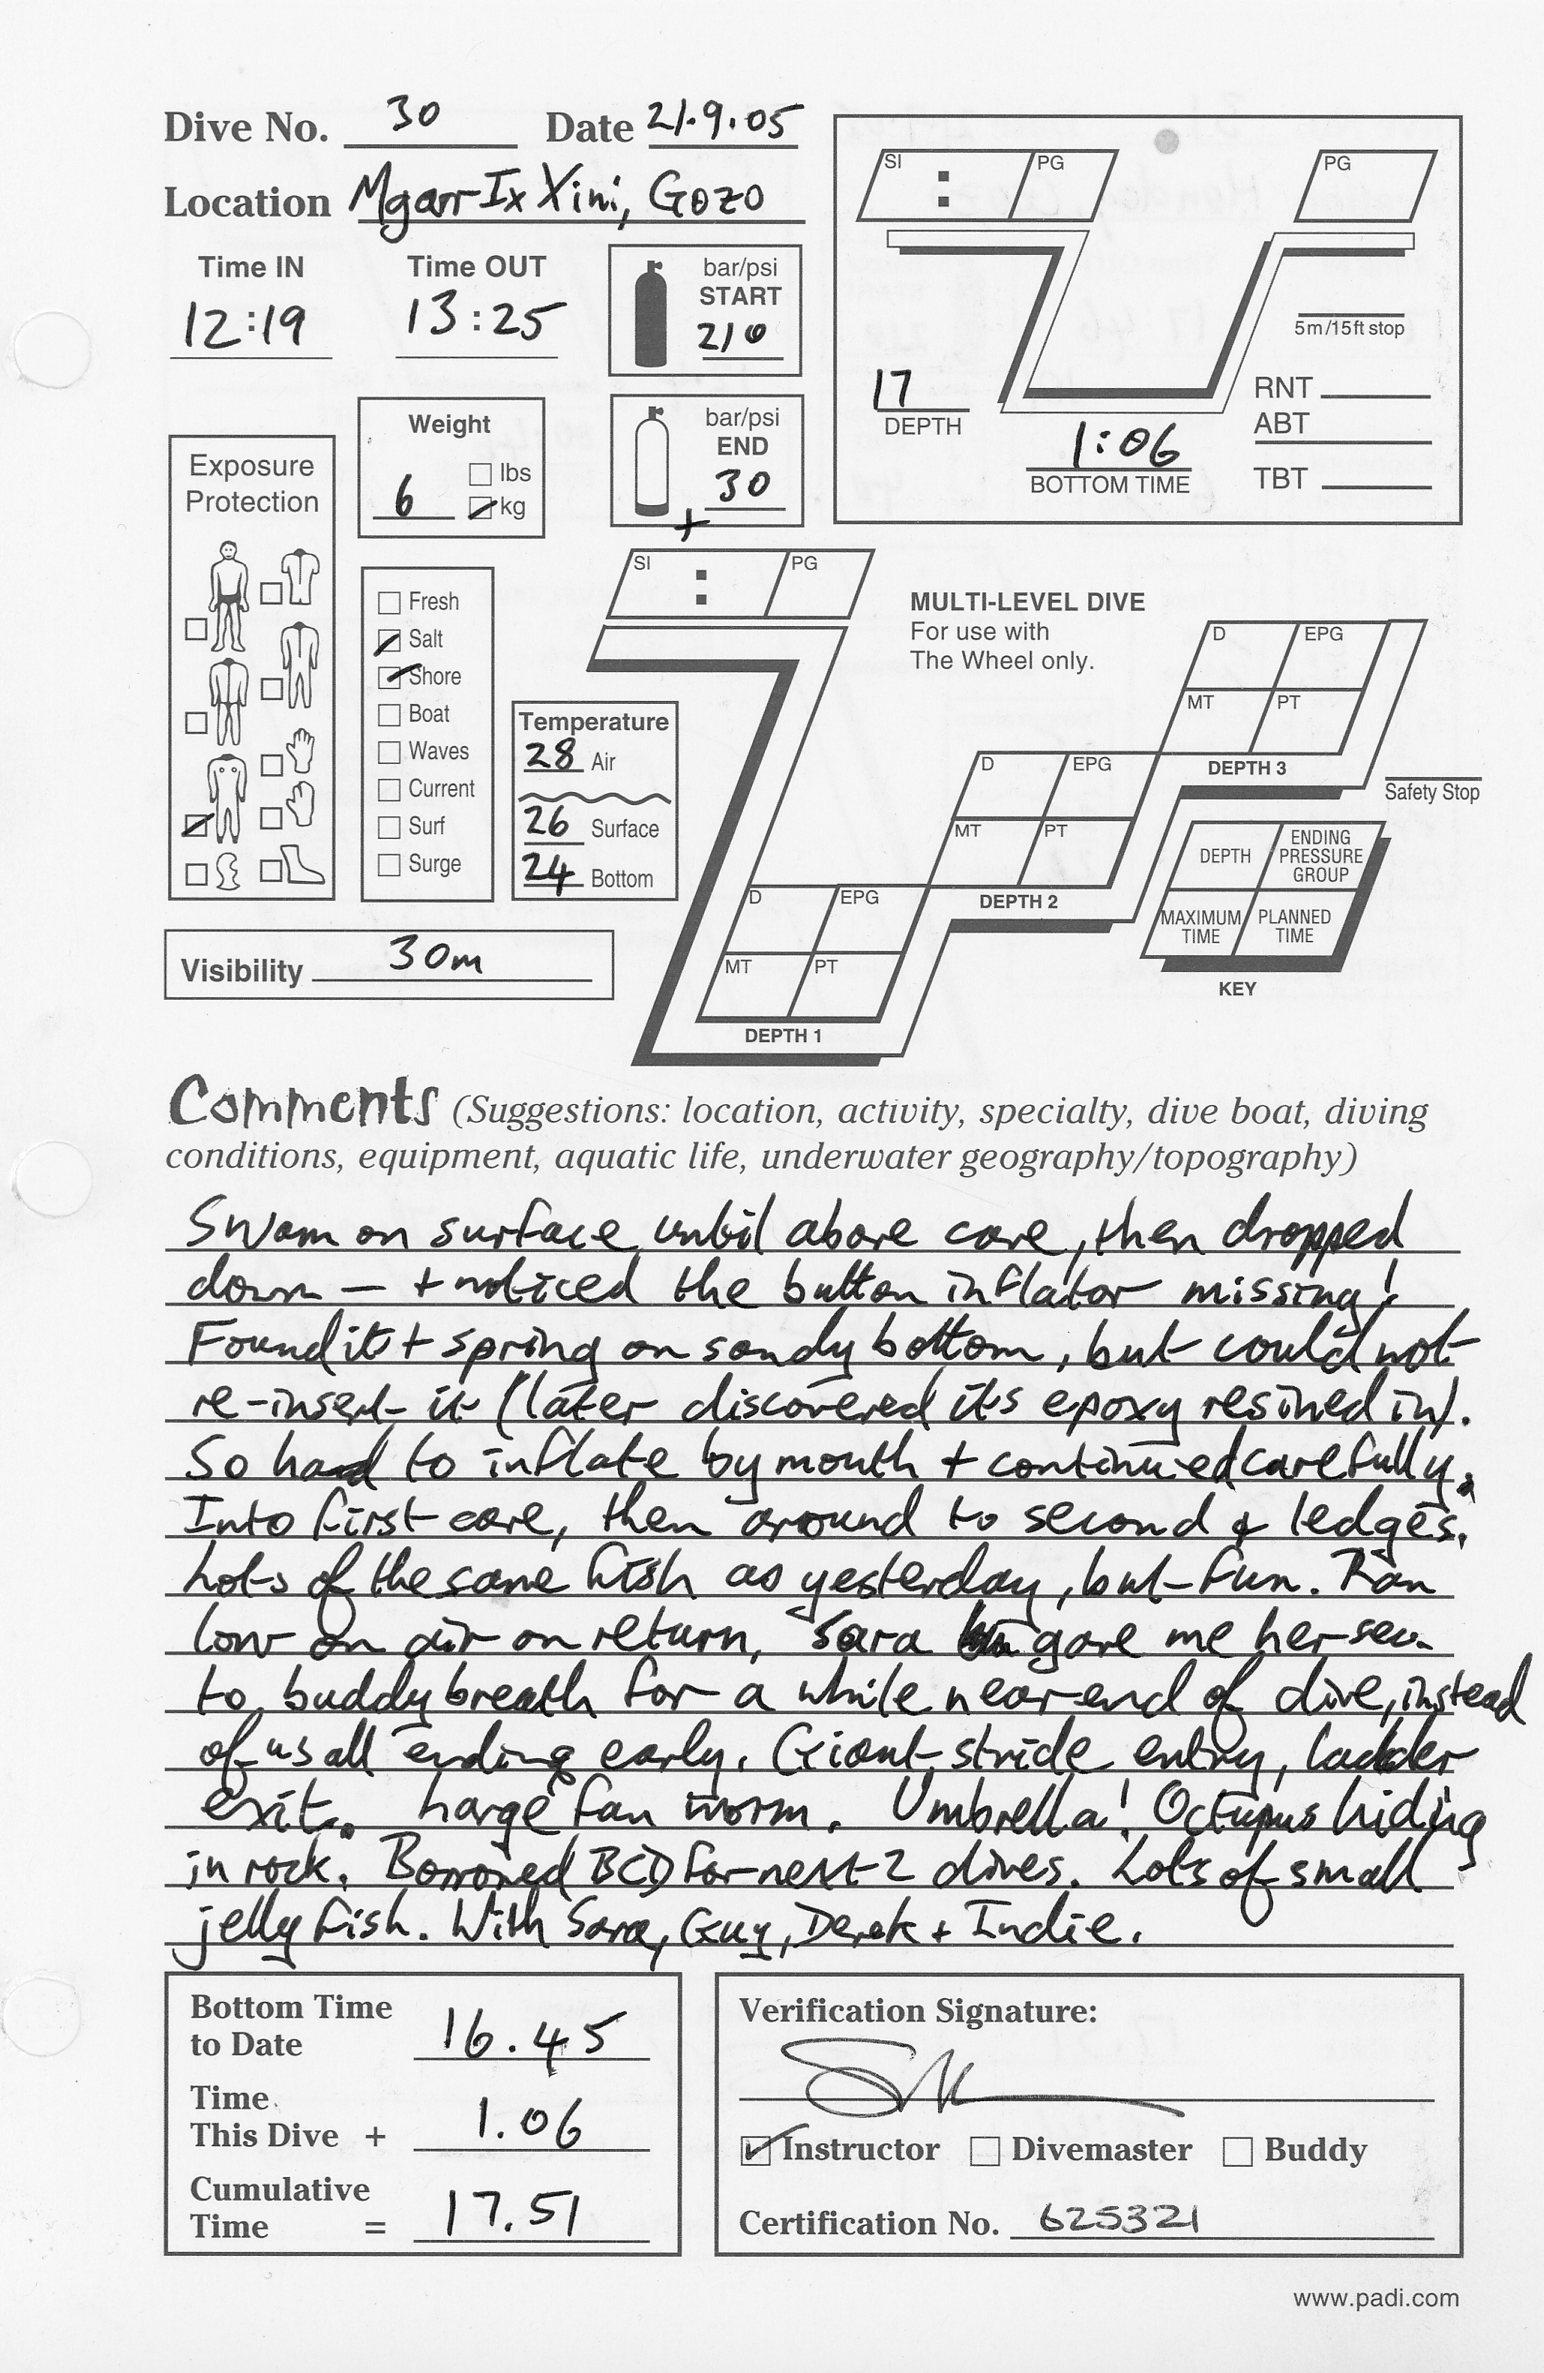 Dive No. 30 Date 21.9.05
Location Mgarr Ix Xini, Gozo
Time IN 12:19
Time OUT 13:25
bar/psi
START
210
bar/psi
END
30
+
Weight
6
lbs
kg
Exposure
Protection
Fresh
Salt
Shore
Boat
Waves
Current
Surf
Surge
Temperature
28 Air
26 Surface
24 Bottom
Visibility 30m
SI : PG
PG
5m/15ft stop
17
DEPTH
1:06
BOTTOM TIME
RNT
ABT
TBT
SI : PG
MULTI-LEVEL DIVE
For use with
The Wheel only.
D EPG
MT PT
DEPTH 1
D EPG
MT PT
DEPTH 2
D EPG
MT PT
DEPTH 3
Safety Stop
DEPTH
ENDING
PRESSURE
GROUP
MAXIMUM
TIME
PLANNED
TIME
KEY
Comments (Suggestions: location, activity, specialty, dive boat, diving
conditions, equipment, aquatic life, underwater geography/topography)
Swam on surface until above cave, then dropped
down – + noticed the button inflator missing!
Found it + spring on sandy bottom, but could not
re-insert it (later discovered its epoxy resined in).
So had to inflate by mouth + continued carefully.
Into first cave, then around to second & ledges.
Lots of the same fish as yesterday, but fun. Ran
low on air on return, Sara gave me her sec.
to buddy breath for a while near end of dive, instead
of us all ending early. Giant stride entry, ladder
exit. Large fan worm. Umbrella! Octupus hiding
in rock. Borrowed BCD for next 2 dives. Lots of small
jelly fish. With Sara, Guy, Derek + Indie.
Bottom Time
to Date 16.45
Time
This Dive + 1.06
Cumulative
Time = 17.51
Verification Signature:
Instructor Divemaster Buddy
Certification No. 625321
www.padi.com